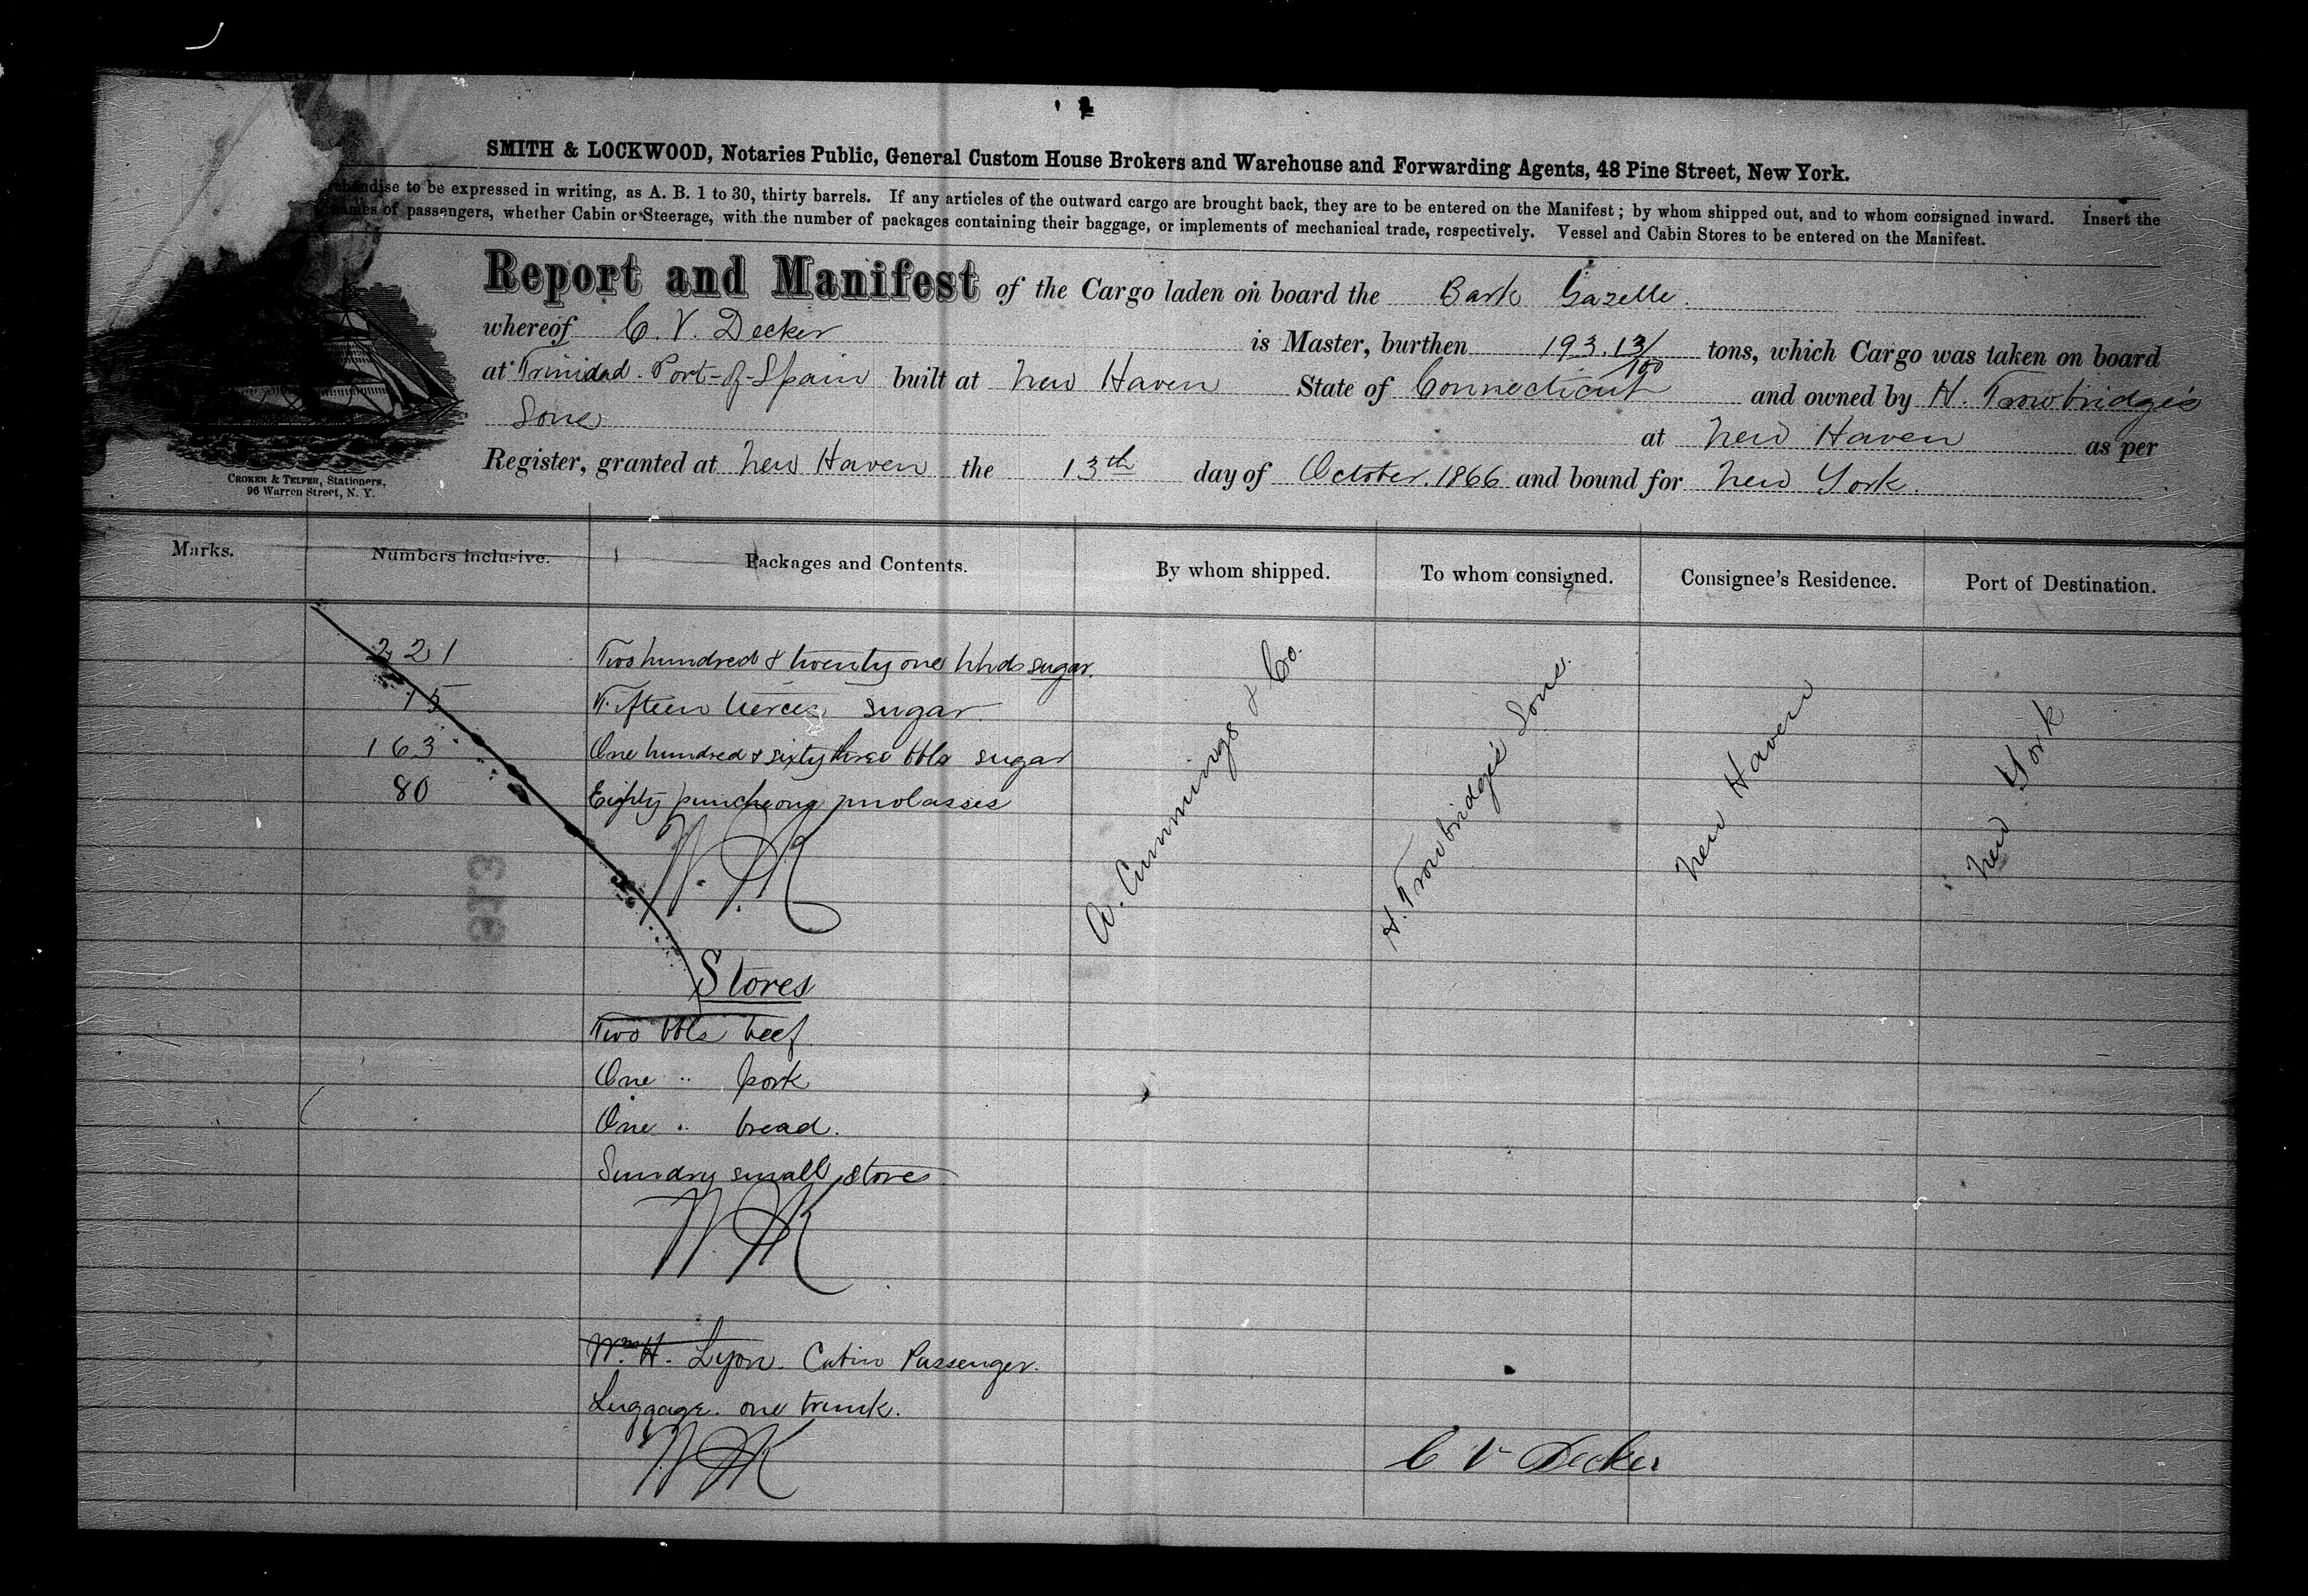 SMITH & LOCKWOOD, Notaries Public, General Custom House Brokers and Warehouse and Forwarding Agents, 48 Pine Street, New York.
chandise to be expressed in writing, as A. B. 1 to 30, thirty barrels. If any articles of the outward cargo are brought back, they are to be entered on the Manifest; by whom shipped out, and to whom consigned inward. Insert the
names of passengers, whether Cabin or Steerage, with the number of packages containing their baggage, or implements of mechanical trade, respectively. Vessel and Cabin Stores to be entered on the Manifest.
Report and Manifest of the Cargo laden on board the Bark Gazelle.
whereof C. V. Decker is Master, burthen 193.13/100 tons, which Cargo was taken on board
at Trinidad Port-of-Spain built at New Haven State of Connecticut and owned by H. Trowbridge's
Sons at New Haven as per
Register, granted at New Haven the 13th day of October. 1866 and bound for New York.
CROKER & TELFER, Stationers,
96 Warren Street, N. Y.
Marks. Numbers inclusive. Packages and Contents. By whom shipped. To whom consigned. Consignee's Residence. Port of Destination.
221 Two hundred & twenty one hhds sugar.
15 Fifteen tierces sugar.
163 One hundred & sixty three bbls sugar
80 Eighty puncheons molasses
A. Cummings & Co.
H. Trowbridge's Sons.
New Haven
New York
Stores
Two bbls beef
One " pork
One " bread.
Sundry small stores
Wm H. Lyon. Cabin Passenger.
Luggage. one trunk.
C V Decker